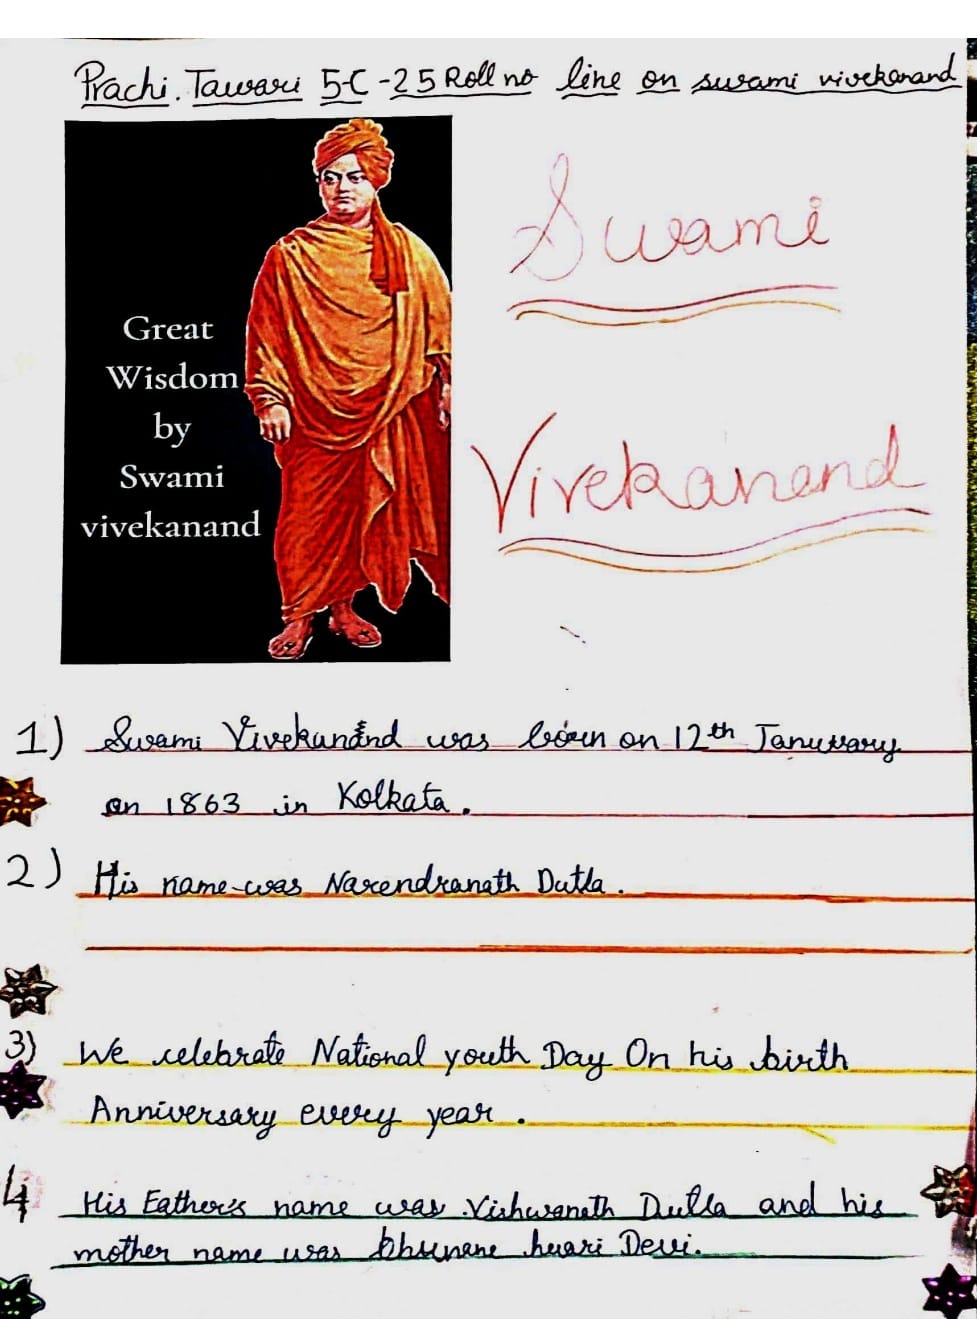 Prachi. Tawari 5-C - 25 Roll no line on swami vivekanand
Great
Wisdom
by
Swami
vivekanand
Swami
Vivekanand
1) Swami Vivekanand was born on 12th Januuary
on 1863 in Kolkata.
2) His name was Narendranath Dutta.
3) We celebrate National youth Day On his birth
Anniversary every year.
4 His Father's name was Vishwanath Dutta and his
mother name was Devi.